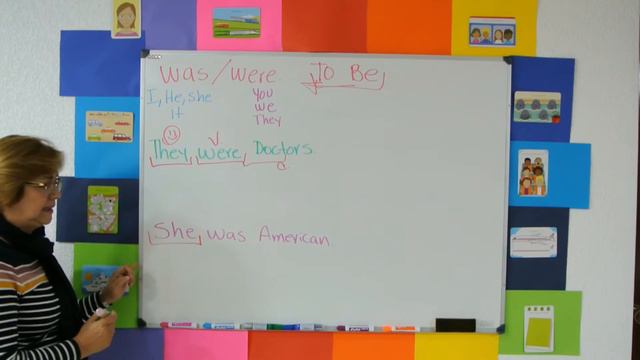 was/were To Be
I, He, she You
it We
They
They were Doctors.
c
She was American.